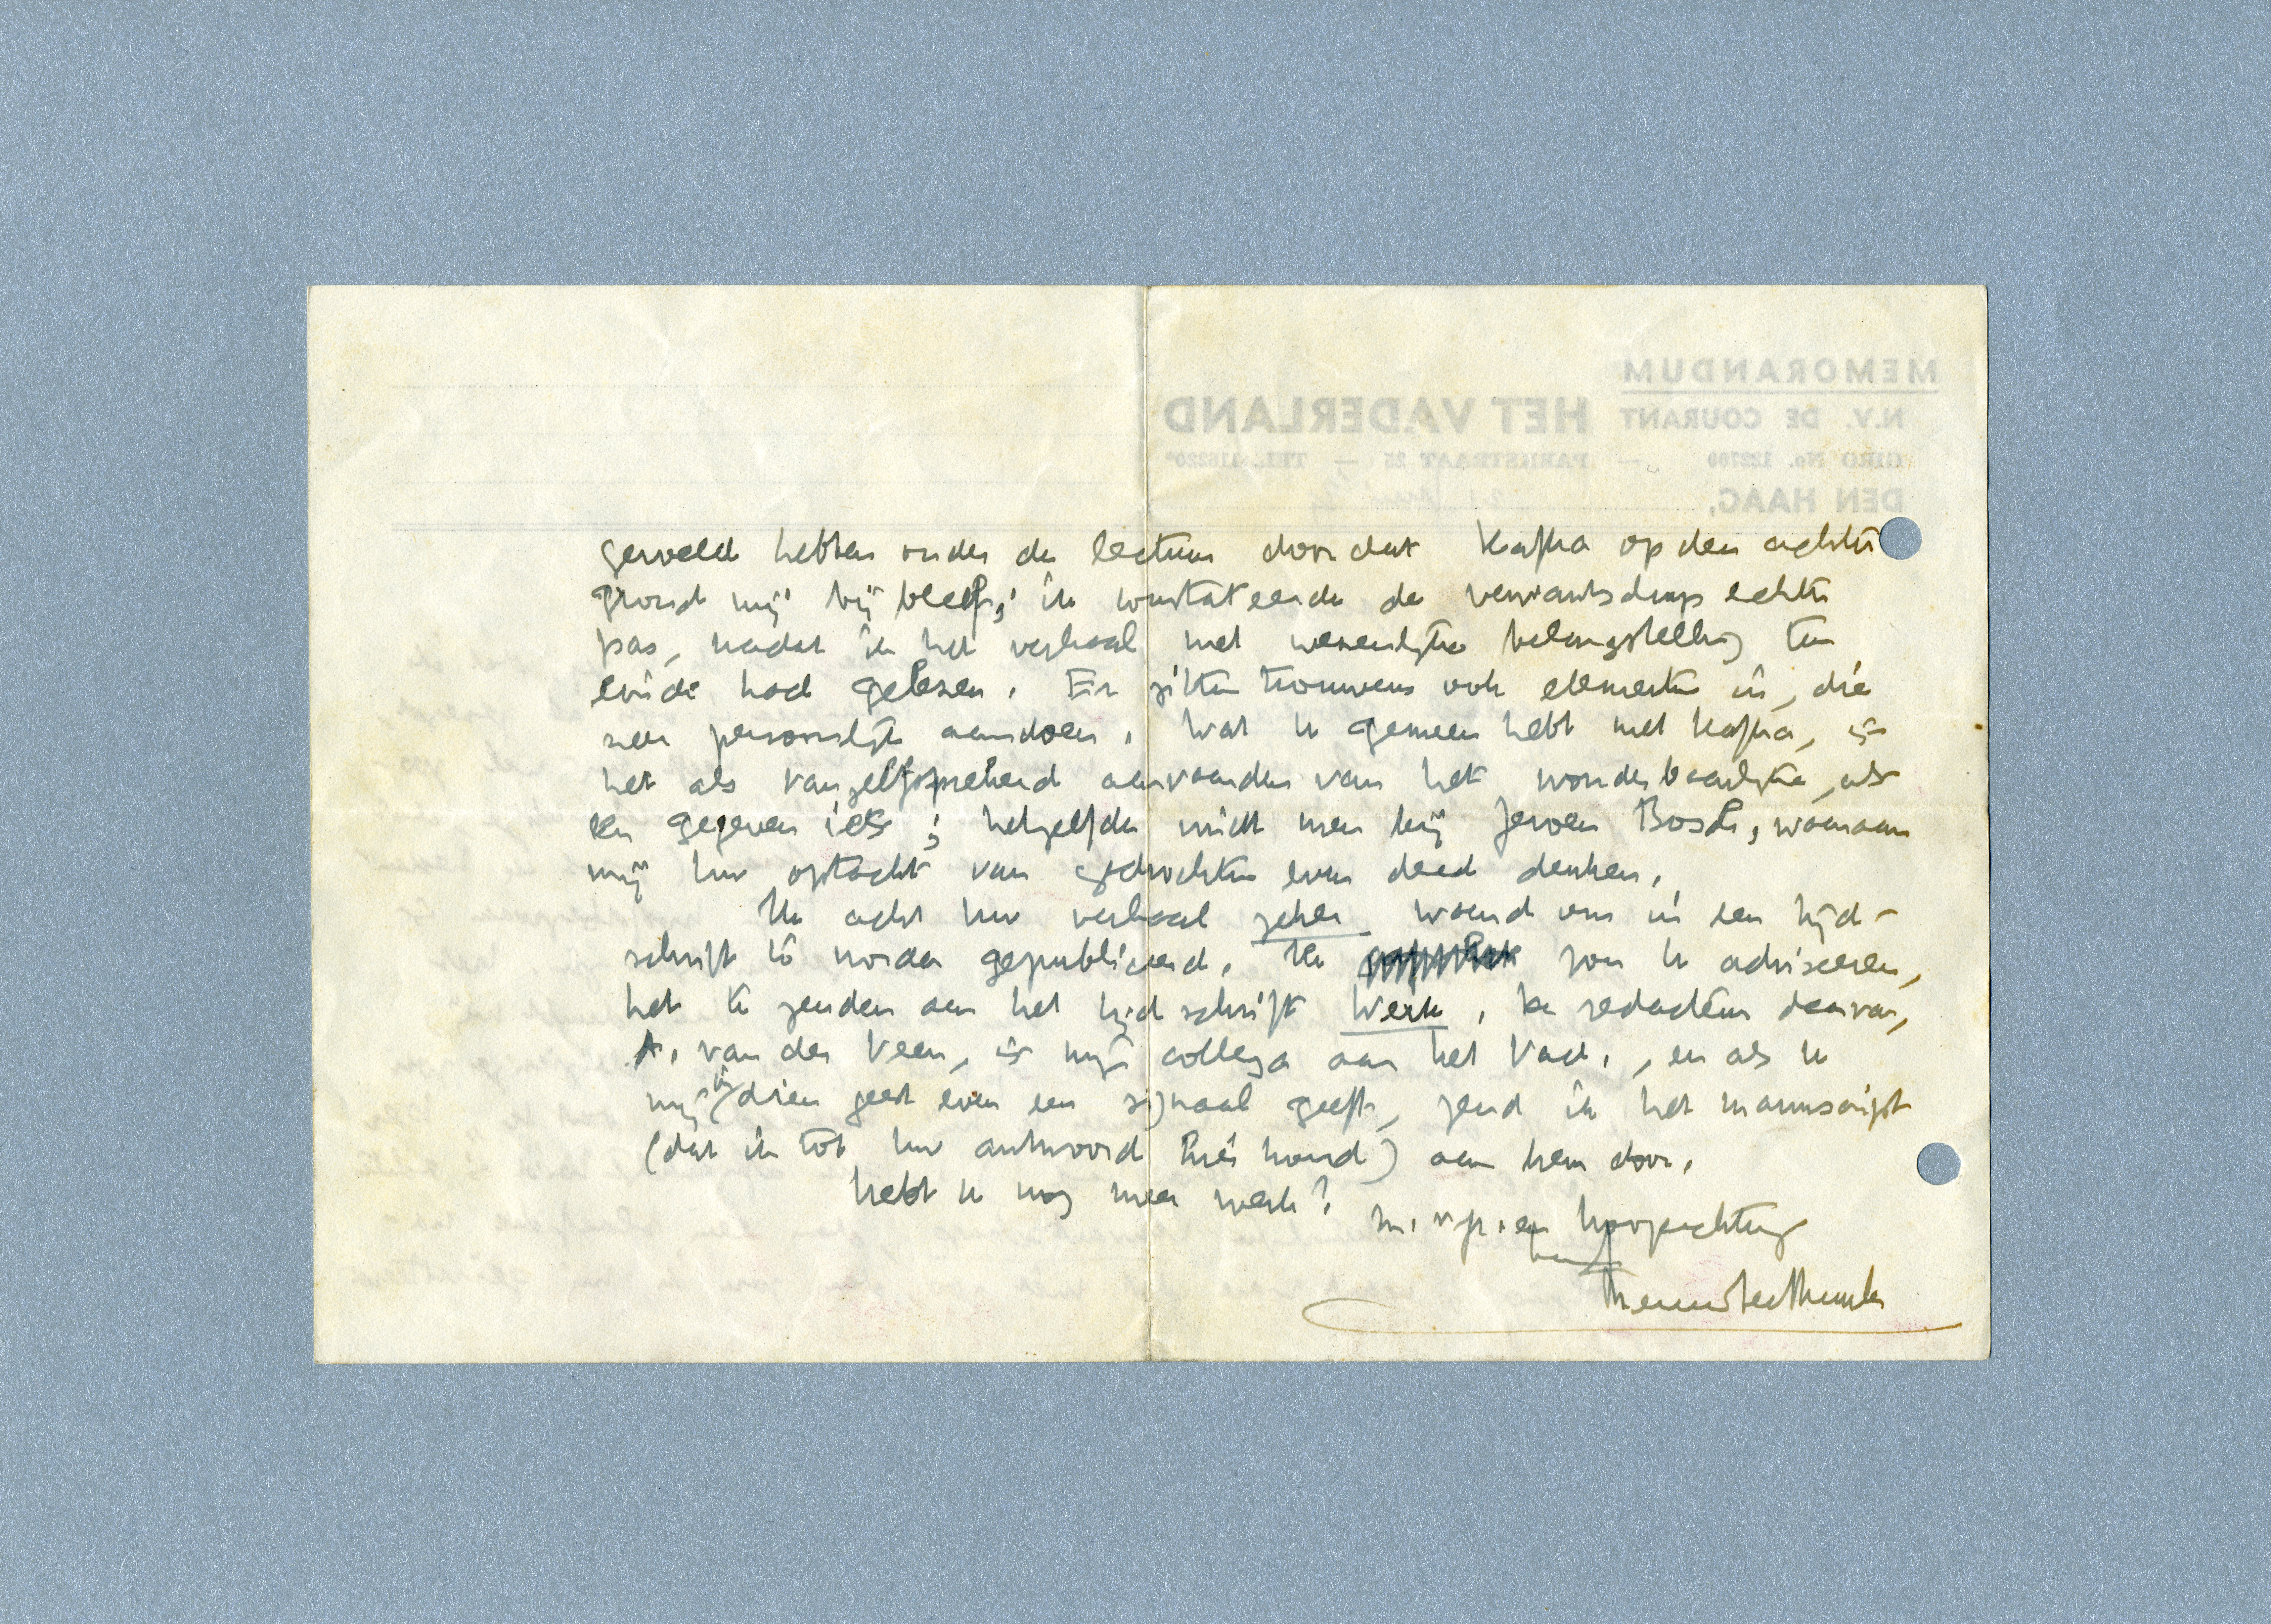 MEMORANDUM
N.V. DE COURANT HET VADERLAND
GIRO No. 122760 — PARKSTRAAT 25 — TEL. 116220*
DEN HAAG,
gevoeld hebben onder de lectuur doordat Kafka op den achter
grond mij bij bleef; ik constateerde de verwantschap echter
pas, nadat ik het verhaal met wezenlijke belangstelling ten
einde had gelezen. Er zitten trouwens ook elementen in, die
zeer persoonlijk aandoen. Wat U gemeen hebt met Kafka, is
het als vanzelfsprekend aanvaarden van het wonderbaarlijke, als
een gegeven iets; hetzelfde vindt men bij Jeroen Bosch, waaraan
mij Uw optocht van gedrochten even deed denken.
Ik acht Uw verhaal zeker waard om in een tijd-
schrift te worden gepubliceerd. Ik zou U adviseeren,
het te zenden aan het tijdschrift Werk. De redacteur daarvan,
A. van der Veen, is mijn collega aan het Vad., en als U
mij in dien geest even een signaal geeft, zend ik het manuscript
(dat ik tot Uw antwoord hier houd) aan hem door.
Hebt U nog meer werk?
m. vr. gr. en hoogachting
Menno ter Braak